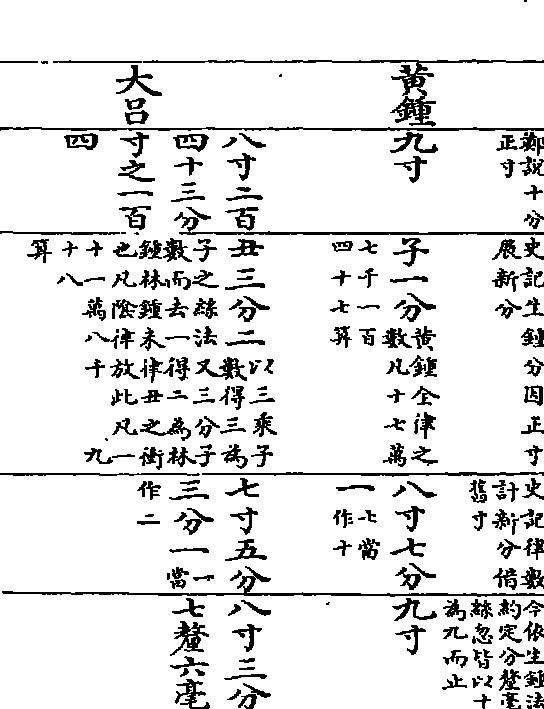 鄭說十分
正寸
史記生鍾分因正寸
展新分
史記律數
計新分借
舊寸
今依生鍾法
約定分釐毫
絲忽皆以十
為九而止
黃鍾
九寸
子一分
黃鍾全律之
數凡十七萬
七千一百
四十七算
八寸七分
一
七當
作十
九寸
大呂
八寸二百
四十三分
寸之一百
四
丑三分二
以三乘子
數得三為
子之絲法又三分子
數而去一得二為林
鍾林鍾未律丑之衝
也凡陰律放此凡一
十一萬八千九
十八
算
七寸五分
三分一
一當
作二
八寸三分
七釐六毫